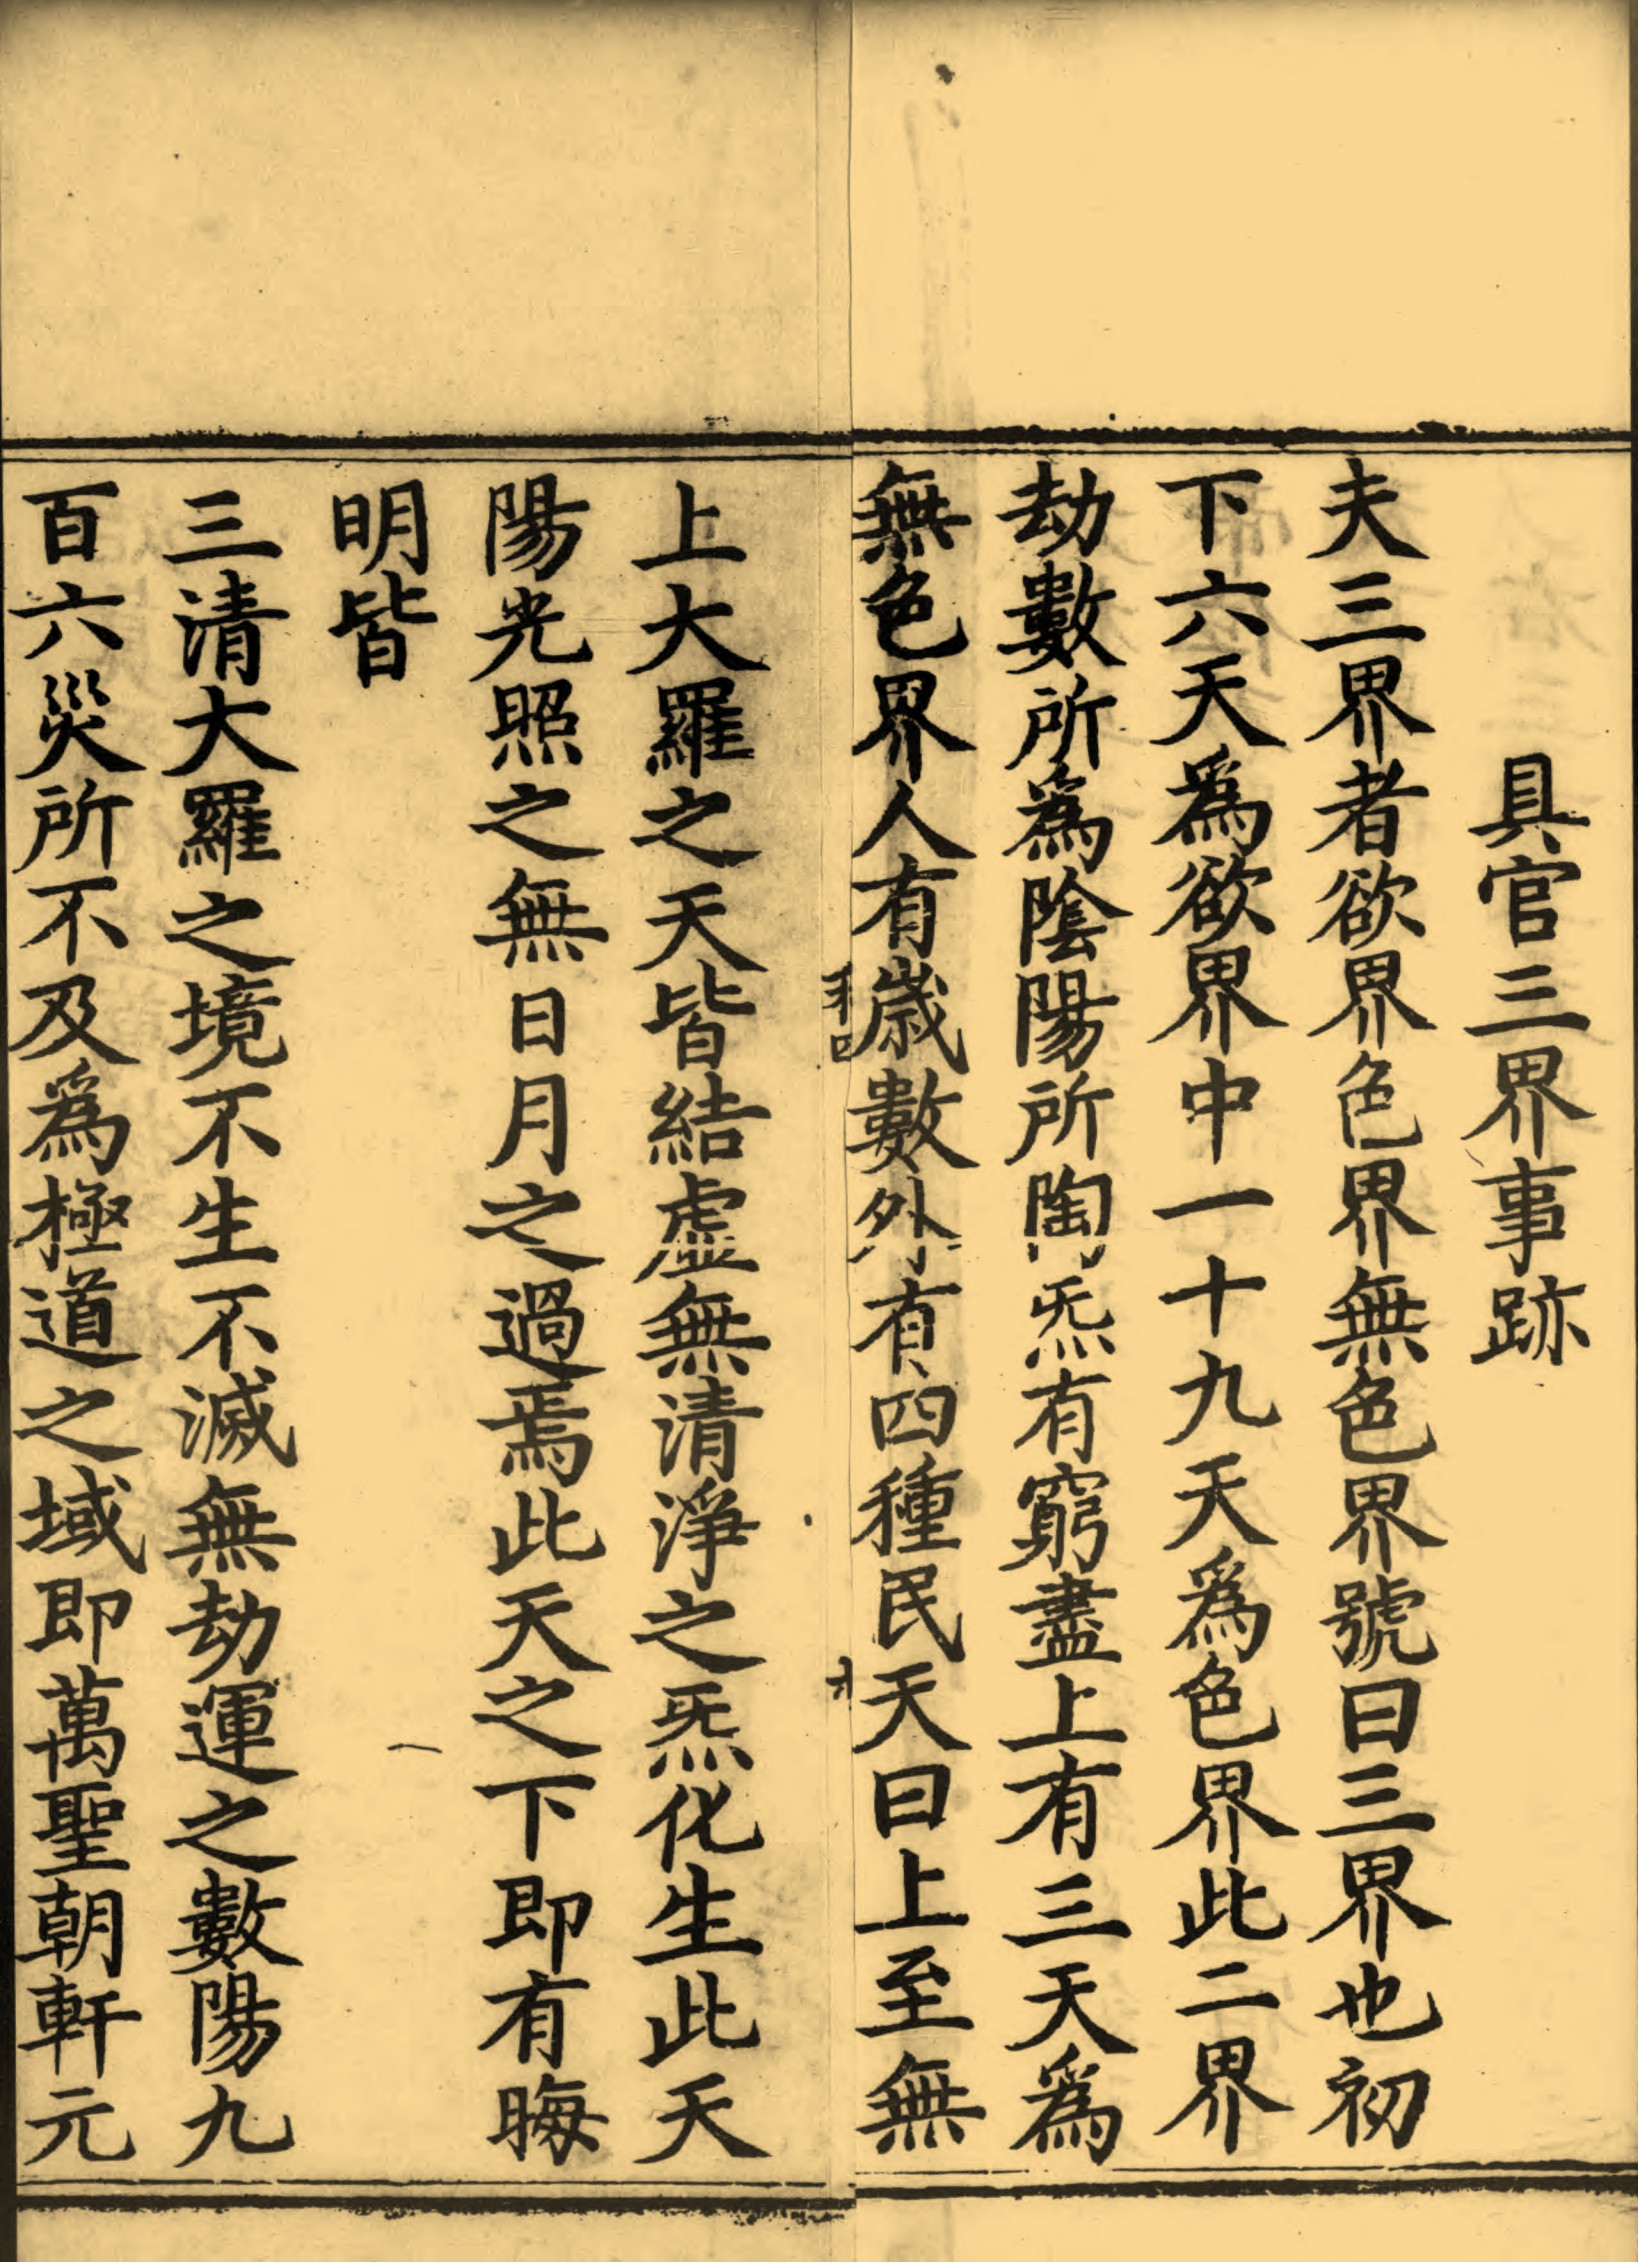 具官三界事跡
夫三界者欲界色界無色界號曰三界也初
下六天爲欲界中一十九天爲色界此二界
劫數所爲陰陽所陶炁有窮盡上有三天爲
無色界人有歲數外有四種民天曰上至無
上大羅之天皆結虛無清淨之炁化生此天
陽光照之無日月之過焉此天之下即有晦
明皆
三清大羅之境不生不滅無劫運之數陽九
百六災所不及爲極道之域即萬聖朝軒元